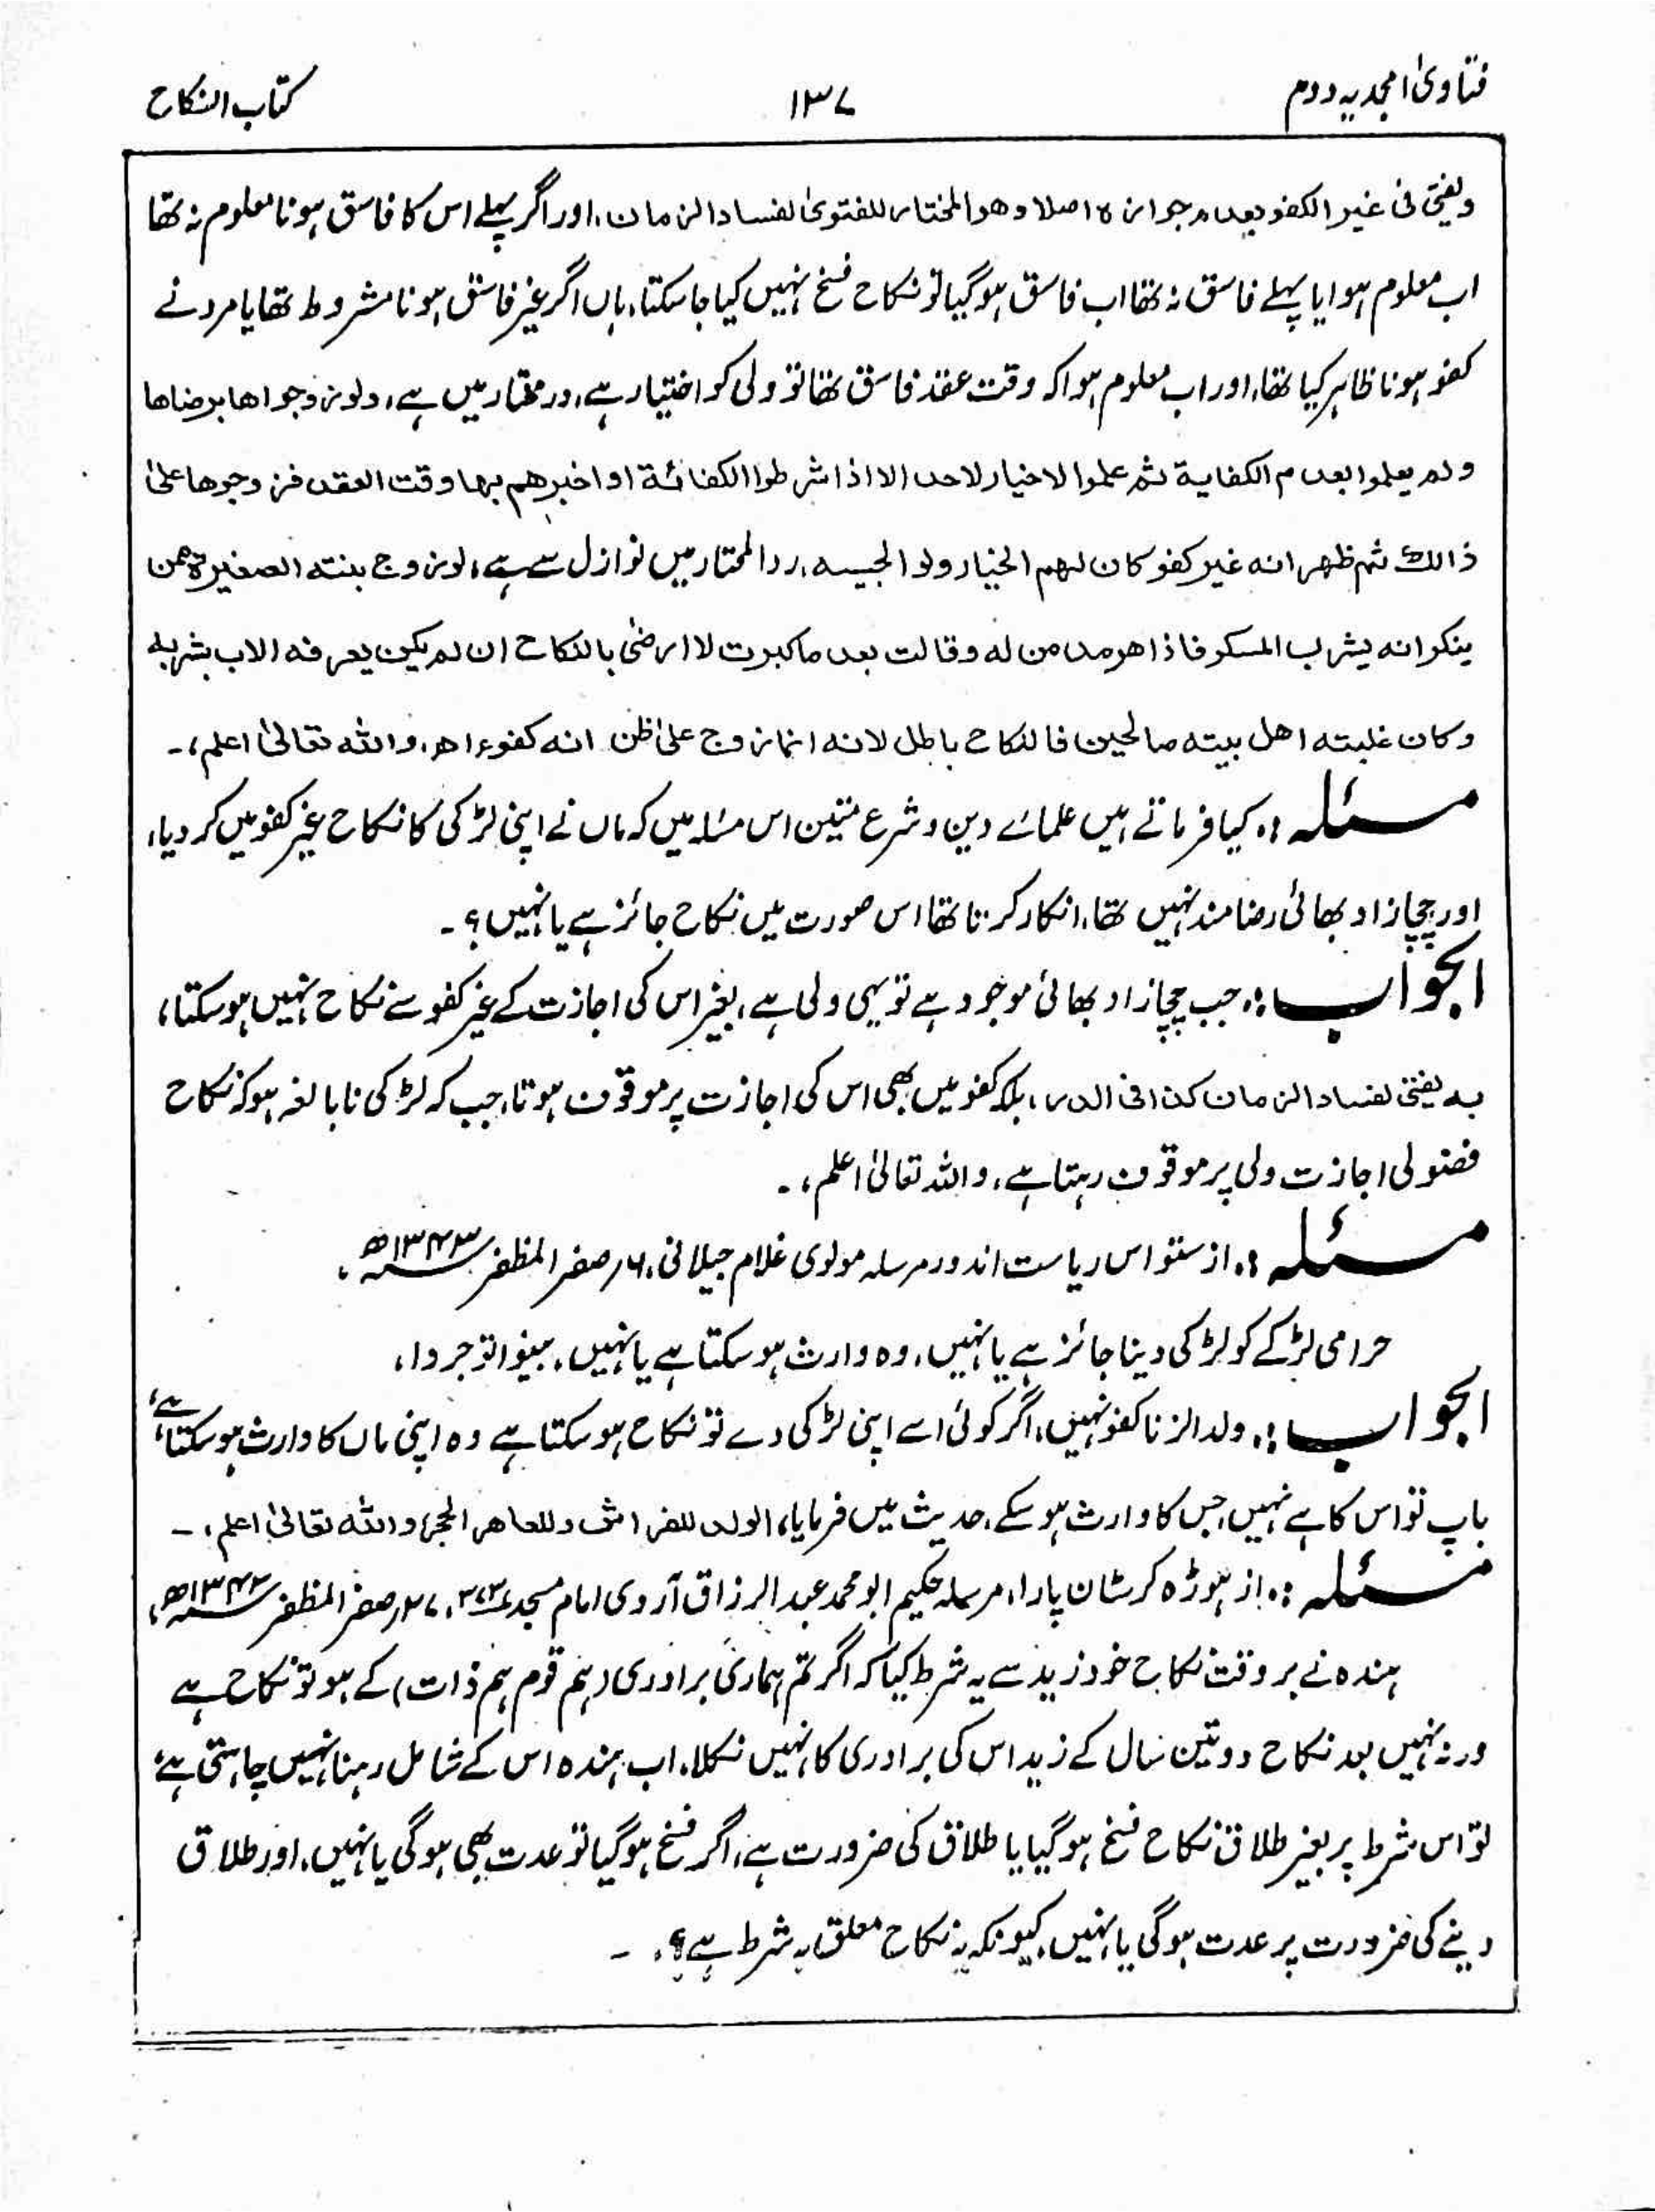 فتاویٰ امجدیہ دوم
۱۳۷
کتاب النکاح
ویفتی فی غیر الکفو بعدم جوازہ اصلا وھو المختار للفتویٰ لفساد الزمان، اور اگر پہلے اس کا فاسق ہونا معلوم نہ تھا
اب معلوم ہوا یا پہلے فاسق نہ تھا اب فاسق ہوگیا تو نکاح فسخ نہیں کیا جاسکتا، ہاں اگر غیر فاسق ہونا مشروط تھا یا مرد نے
کفو ہونا ظاہر کیا تھا، اور اب معلوم ہوا کہ وقت عقد فاسق تھا تو ولی کو اختیار ہے، درمختار میں ہے، ولو زوجواھا برضاھا
ولم یعلموا بعدم الکفایۃ ثم علموا لا خیار لاحد الا اذا شرطوا الکفائۃ او اخبرھم بہا وقت العقد فزوجوھا علیٰ
ذالک ثم ظھر انہ غیر کفو کان لہم الخیار ولوالجیہ، ردالمحتار میں نوازل سے ہے، لو زوج بنتہ الصغیرۃ ممن
ینکر انہ یشرب المسکر فاذا ھو مدمن لہ وقالت بعد ما کبرت لا ارضیٰ بالنکاح ان لم یکن یعرفہ الاب بشربہ
وکان غلبتہ اھل بیتہ صالحین فالنکاح باطل لانہ انما زوج علیٰ ظن انہ کفوء اھ، واللہ تعالیٰ اعلم،۔
مسئلہ :۔ کیا فرماتے ہیں علمائے دین و شرع متین اس مسئلہ میں کہ ماں نے اپنی لڑکی کا نکاح غیر کفو میں کردیا،
اور چچازاد بھائی رضامند نہیں تھا، انکار کرتا تھا اس صورت میں نکاح جائز ہے یا نہیں؟۔
الجواب :۔ جب چچازاد بھائی موجود ہے تو یہی ولی ہے، بغیر اس کی اجازت کے غیر کفو سے نکاح نہیں ہوسکتا،
بہ یفتیٰ لفساد الزمان کذا فی الدر، بلکہ کفو میں بھی اس کی اجازت پر موقوف ہوتا، جب کہ لڑکی نابالغہ ہو کہ نکاح
فضولی اجازت ولی پر موقوف رہتا ہے، واللہ تعالیٰ اعلم،۔
مسئلہ :۔ از ستواس ریاست اندور مرسلہ مولوی غلام جیلانی، ۶؍ صفر المظفر ۱۳۴۳ھ،
حرامی لڑکے کو لڑکی دینا جائز ہے یا نہیں، وہ وارث ہوسکتا ہے یا نہیں، بینوا توجروا،
الجواب :۔ ولد الزنا کفو نہیں، اگر کوئی اسے اپنی لڑکی دے تو نکاح ہوسکتا ہے وہ اپنی ماں کا وارث ہوسکتا ہے،
باپ تو اس کا ہے نہیں جس کا وارث ہوسکے، حدیث میں فرمایا، الولد للفراش وللعاھر الحجر، واللہ تعالیٰ اعلم،۔
مسئلہ :۔ از ہوڑہ کرسٹان پارا، مرسلہ حکیم ابو محمد عبدالرزاق آروی امام مسجد ۲۷؍ صفر المظفر ۱۳۴۳ھ،
ہندہ نے بروقت نکاح خود زید سے یہ شرط کیا کہ اگر تم ہماری برادری (ہم قوم ہم ذات) کے ہو تو نکاح ہے
ورنہ نہیں بعد نکاح دو تین سال کے زید اس کی برادری کا نہیں نکلا، اب ہندہ اس کے شامل رہنا نہیں چاہتی ہے،
تو اس شرط پر بغیر طلاق نکاح فسخ ہوگیا یا طلاق کی ضرورت ہے، اگر فسخ ہوگیا تو عدت بھی ہوگی یا نہیں، اور طلاق
دینے کی ضرورت پر عدت ہوگی یا نہیں، کیونکہ یہ نکاح معلق بہ شرط ہے؟۔